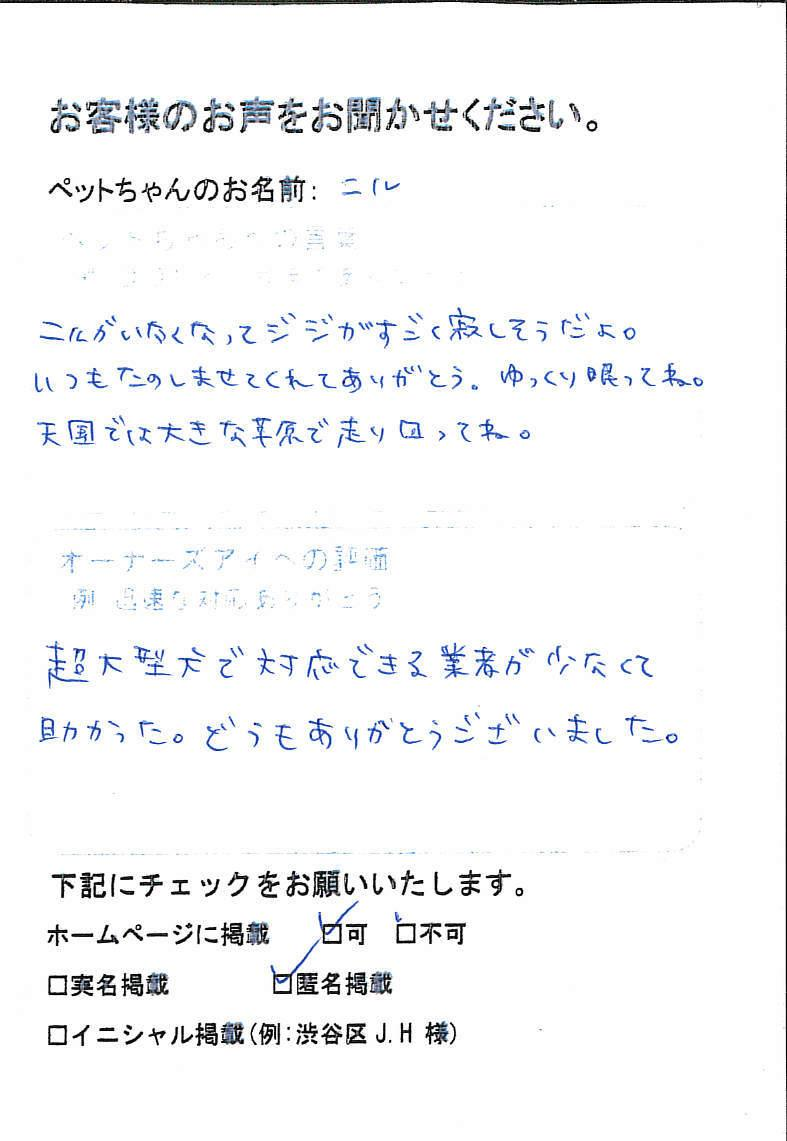 お客様のお声をお聞かせください。
ペットちゃんのお名前: ニル
ペットちゃんへの言葉
ニルがいなくなってジジがすごく寂しそうだよ。
いつもたのしませてくれてありがとう。ゆっくり眠ってね。
天国では大きな草原で走り回ってね。
オーナーズアイへの評価
例 迅速な対応ありがとう
超大型犬で対応できる業者が少なくて
助かった。どうもありがとうございました。
下記にチェックをお願いいたします。
ホームページに掲載 □可 □不可
□実名掲載 □匿名掲載
□イニシャル掲載(例:渋谷区 J.H 様)